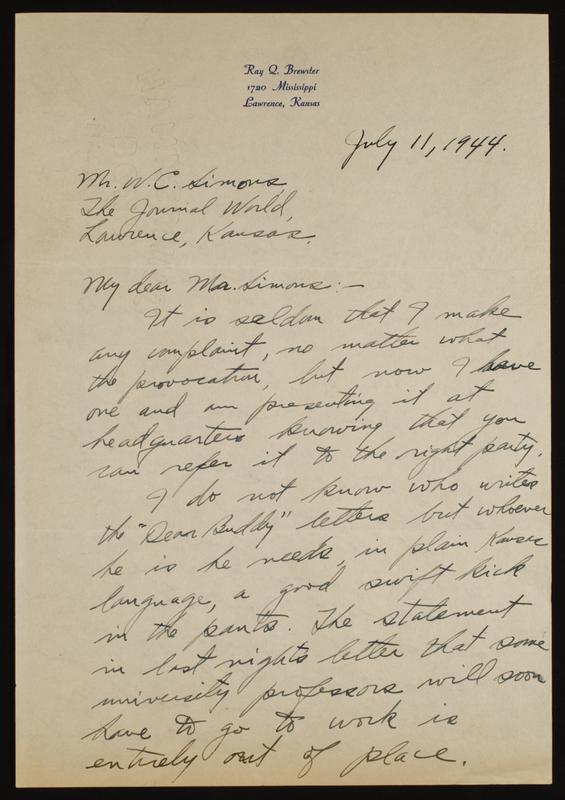 Ray Q. Brewster
1720 Mississippi
Lawrence, Kansas
July 11, 1944.
Mr. W. C. Simons,
The Journal World,
Lawrence, Kansas.
My dear Mr. Simons:-
It is seldom that I make
any complaint, no matter what
the provocation, but now I have
one and am presenting it at
headquarters knowing that you
can refer it to the right party.
I do not know who writes
the "Dear Buddy" letters but whoever
he is he needs, in plain Kansas
language, a good swift kick
in the pants. The statement
in last nights letter that some
university professors will soon
have to go to work is
entirely out of place.